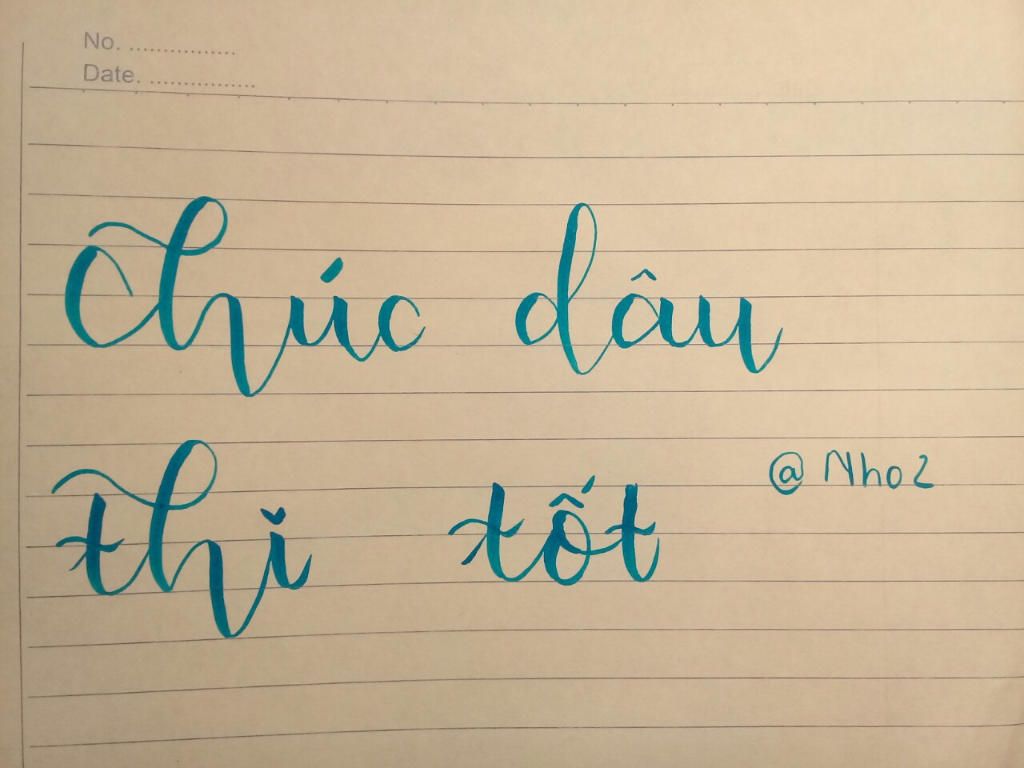 No. ................
Date. ................
Chúc dâu
thi tốt
@ Nho2